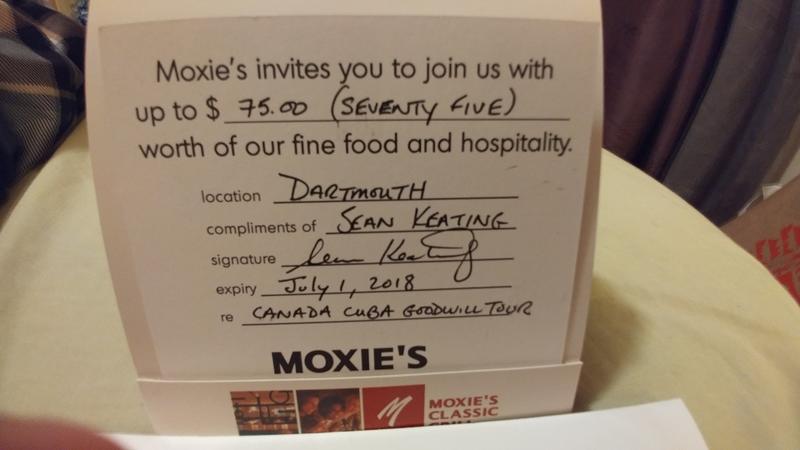 Moxie's invites you to join us with
up to $ 75.00 (SEVENTY FIVE)
worth of our fine food and hospitality.
location DARTMOUTH
compliments of SEAN KEATING
signature Sean Keating
expiry July 1, 2018
re CANADA CUBA GOODWILL TOUR
MOXIE'S
M MOXIE'S
CLASSIC